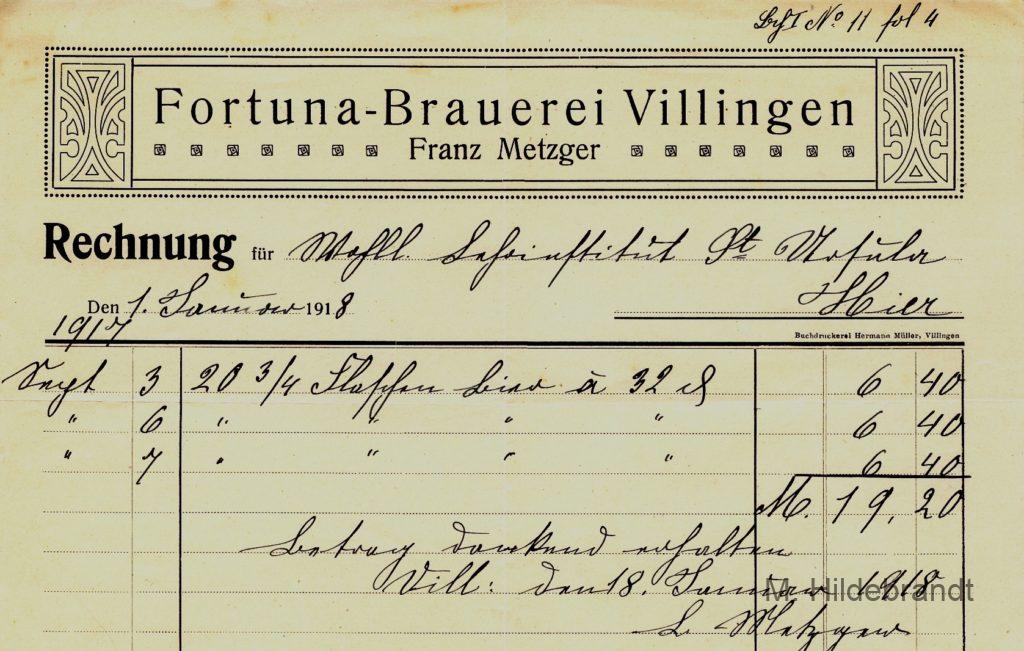 No 11 fol 4
Fortuna-Brauerei Villingen
Franz Metzger
Rechnung für Wohll. Lehrinstitut St Ursula
Den 1. Januar 1918 Hier
1917
Buchdruckerei Hermann Müller, Villingen
Sept 3 20 3/4 Flaschen Bier à 32 ₰ 6 40
" 6 " " " " 6 40
" 7 " " " " 6 40
M. 19,20
Betrag dankend erhalten
Vill: den 18. Januar 1918
M. Hildebrandt
L. Metzger